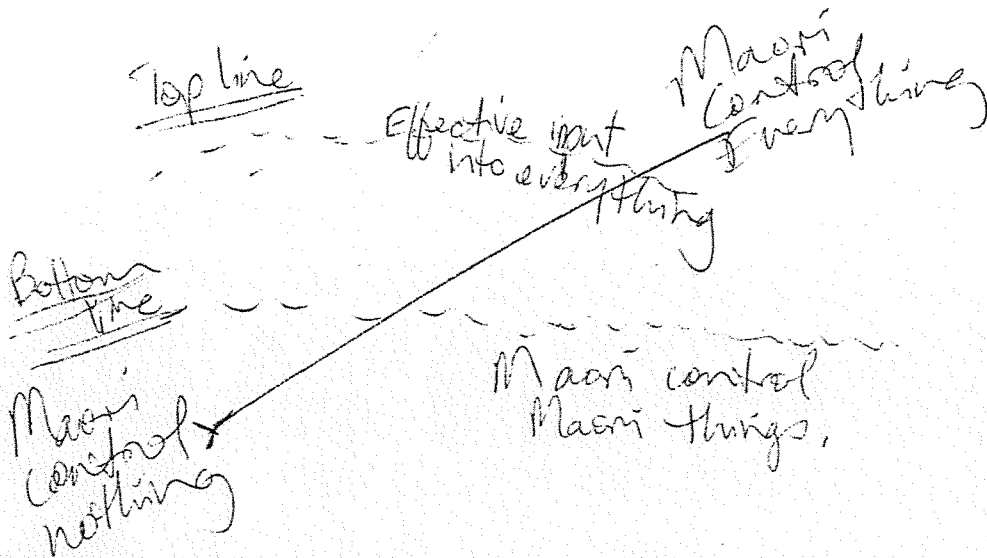 Top line
Effective input
into everything
Maori
Control
Everything
Bottom
line
Maori control
Maori things.
Maori
control
nothing